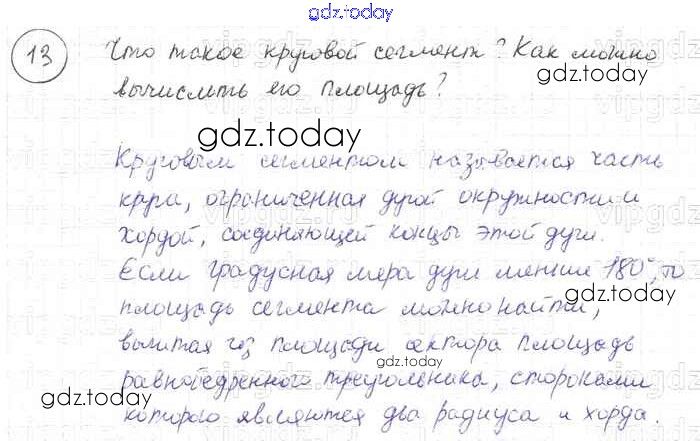 gdz.today
13 Что такое круговой сегмент? Как можно
gdz.today
вычислить его площадь?
gdz.today
Круговым сегментом называется часть
круга, ограниченная дугой окружности и
gdz.today
хордой, соединяющей концы этой дуги.
Если градусная мера дуги меньше 180°, то
gdz.today
площадь сегмента можно найти,
вычитая из площади сектора площадь
gdz.today
равнобедренного треугольника, сторонами
gdz.today
которого являются два радиуса и хорда.